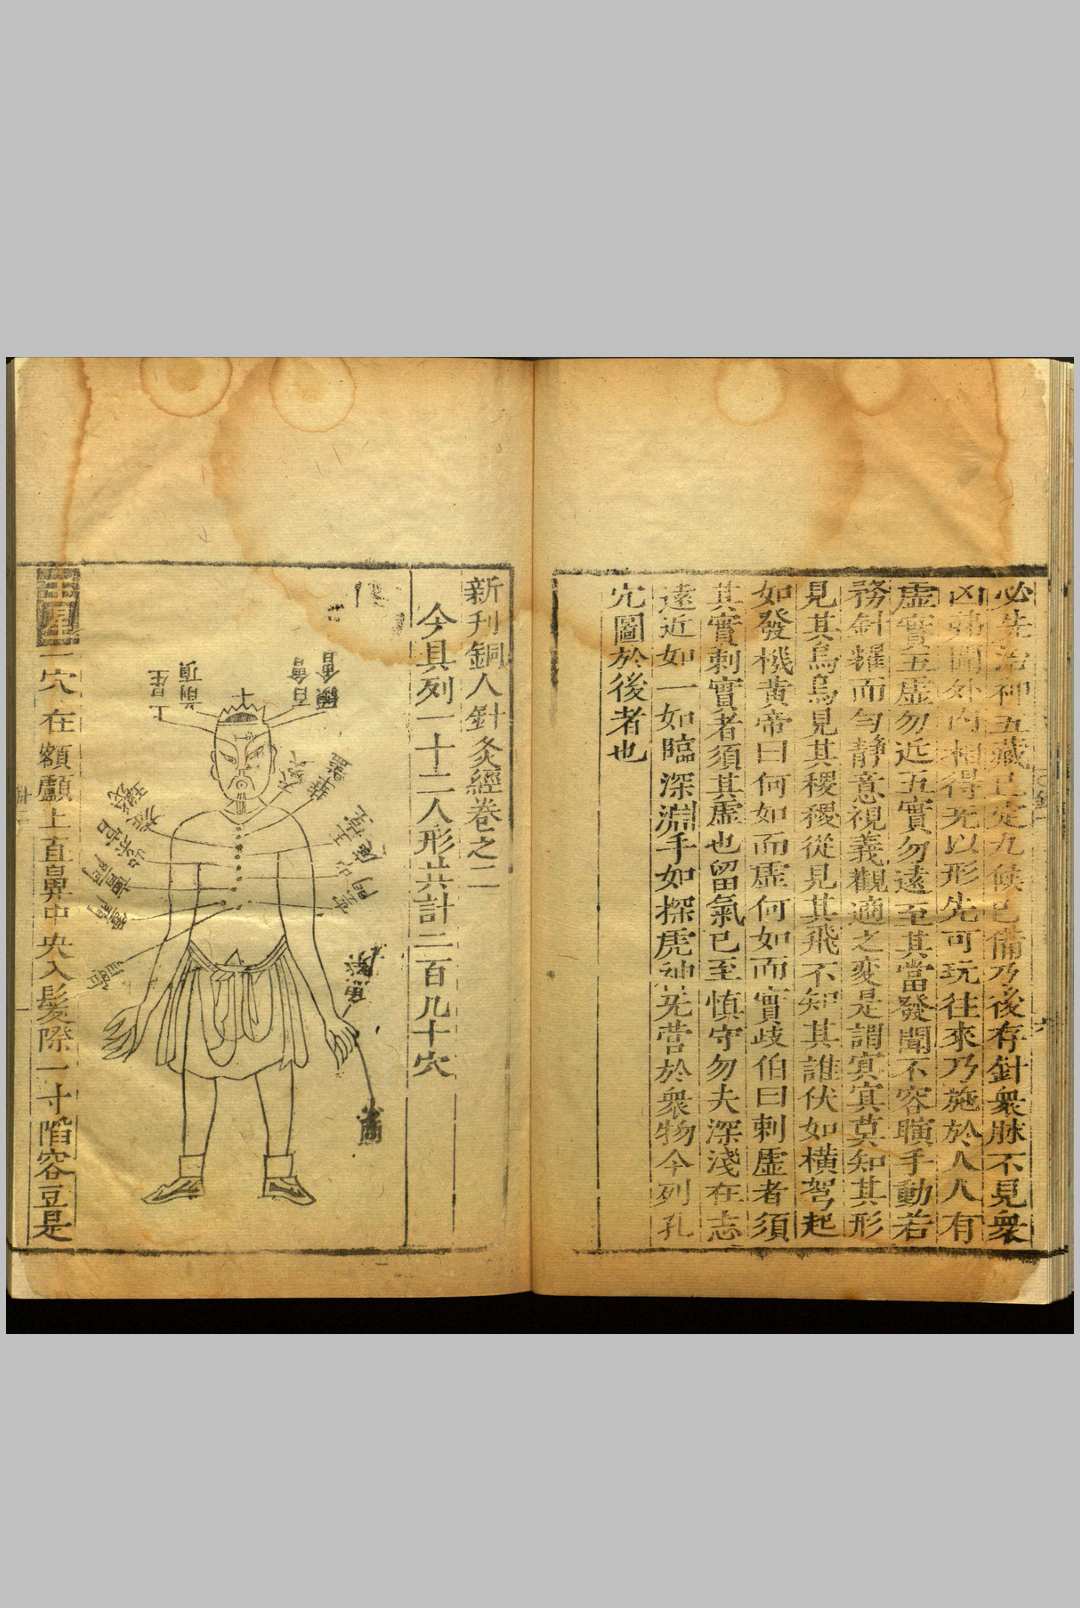 必先治神五藏已定九候已備乃後存針衆脉不見衆
凶弗聞外内相得無以形先可玩往來乃施於人人有
虚實五虚勿近五實勿遠至其當發間不容瞚手動若
務針耀而勻靜意視義觀適之変是謂冥冥莫知其形
見其烏烏見其稷稷從見其飛不知其誰伏如橫弩起
如發機黄帝曰何如而虚何如而實歧伯曰刺虚者須
其實刺實者須其虚也留氣已至慎守勿失深淺在志
遠近如一如臨深淵手如探虎神無營於衆物今列孔
穴圖於後者也
新刊銅人針灸經卷之二
今具列一十二人形共計二百九十穴
顖會
百會
前頂
上星
璇璣
華蓋
紫宮
膺
一穴在額顱上直鼻中央入髮際一寸陷容豆是